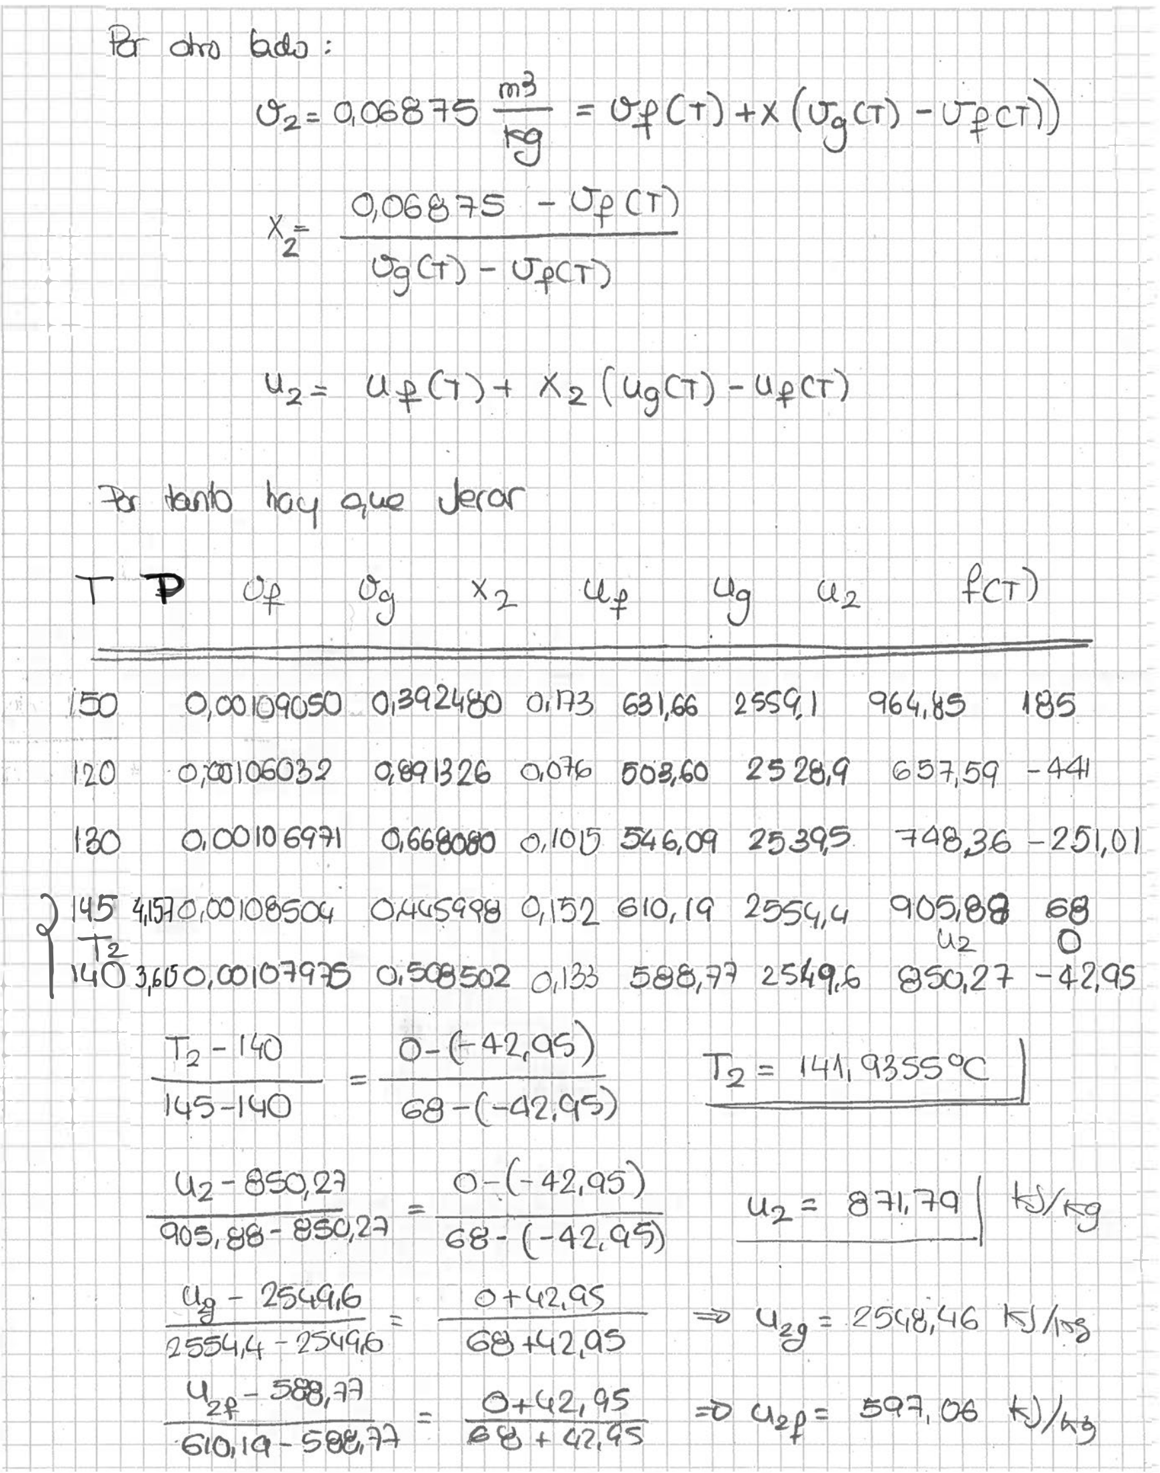 Por otro lado:
v2 = 0,06875 m3/kg = vf(T) + x(vg(T) - vf(T))
x2 = (0,06875 - vf(T)) / (vg(T) - vf(T))
u2 = uf(T) + x2(ug(T) - uf(T)
Por tanto hay que
T P vf vg x2 uf ug u2 f(T)
150 0,00109050 0,392480 0,173 631,66 2559,1 964,85 185
120 0,00106032 0,891326 0,076 503,60 2528,9 657,59 -441
130 0,00106971 0,668080 0,1015 546,09 2539,5 748,36 -251,01
145 4,157 0,00108504 0,445998 0,152 610,19 2554,4 905,88 68
T2 u2 0
140 3,615 0,00107975 0,508502 0,133 588,77 2549,6 850,27 -42,95
(T2 - 140) / (145 - 140) = (0 - (-42,95)) / (68 - (-42,95)) T2 = 141,9355ºC
(u2 - 850,27) / (905,88 - 850,27) = (0 - (-42,95)) / (68 - (-42,95)) u2 = 871,79 kJ/kg
(ug - 2549,6) / (2554,4 - 2549,6) = (0 + 42,95) / (68 + 42,95) ⇒ u2g = 2548,46 kJ/kg
(u2f - 588,77) / (610,19 - 588,77) = (0 + 42,95) / (68 + 42,95) ⇒ u2f = 597,06 kJ/kg